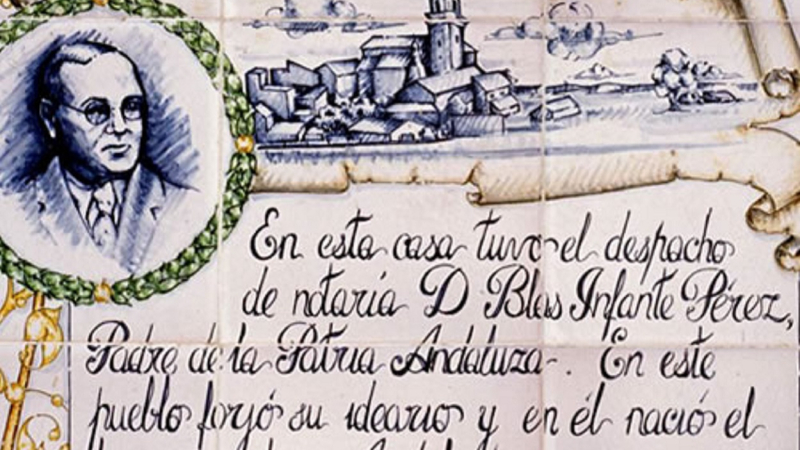 En esta casa tuvo el despacho
de notaría D Blas Infante Pérez,
Padre de la Patria Andaluza. En este
pueblo forjó su ideario y en él nació el